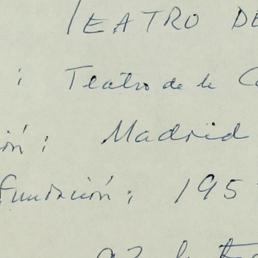 TEATRO DE
: Teatro de la C
ión: Madrid
fundación: 195